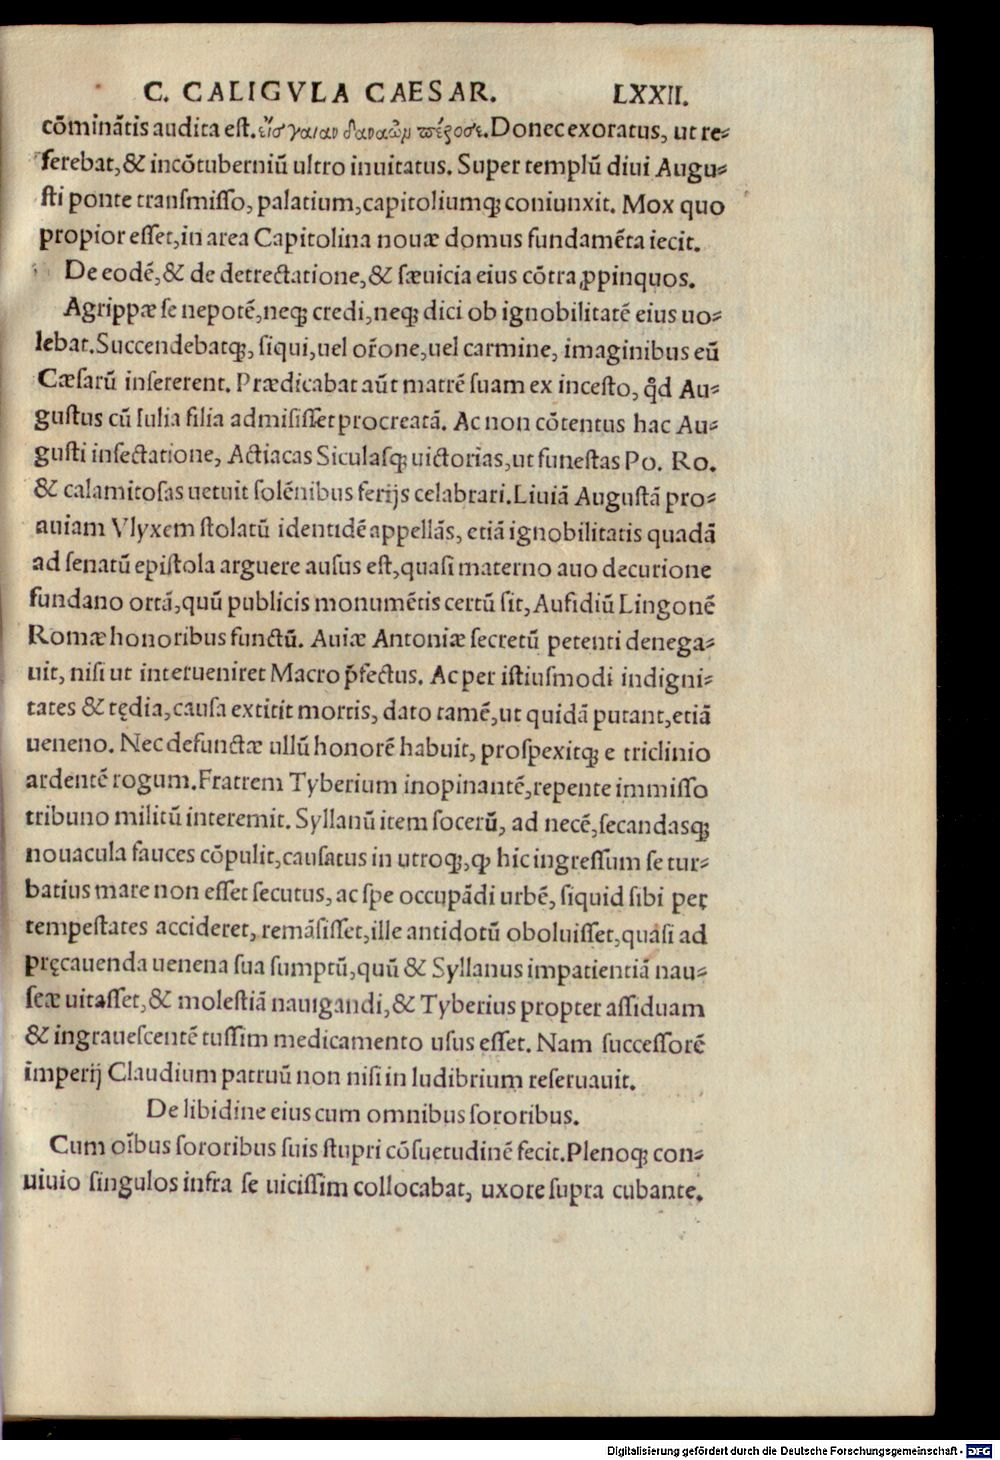 C. CALIGVLA CAESAR. LXXII.
cōminātis audita eſt. εἴσ γαιαν δαναῶμ πέροσε. Donec exoratus, ut re⸗
ferebat, & incōtuberniū ultro inuitatus. Super templū diui Augu⸗
ſti ponte tranſmiſſo, palatium, capitoliumq; coniunxit. Mox quo
propior eſſet, in area Capitolina nouæ domus fundamēta iecit.
De eodē, & de detrectatione, & ſæuicia eius cōtra ꝓpinquos.
Agrippæ ſe nepotē, neq; credi, neq; dici ob ignobilitatē eius uo⸗
lebat. Succendebatq;, ſiqui, uel or̄one, uel carmine, imaginibus eū
Cæſarū inſererent. Prædicabat aūt matrē ſuam ex inceſto, qd̄ Au⸗
guſtus cū Iulia filia admiſiſſet procreatā. Ac non cōtentus hac Au⸗
guſti inſectatione, Actiacas Siculaſq; uictorias, ut funeſtas Po. Ro.
& calamitoſas uetuit ſolēnibus ferijs celabrari. Liuiā Auguſtā pro⸗
auiam Vlyxem ſtolatū identidē appellās, etiā ignobilitatis quadā
ad ſenatū epiſtola arguere auſus eſt, quaſi materno auo decurione
fundano ortā, quū publicis monumētis certū ſit, Aufidiū Lingonē
Romæ honoribus functū. Auiæ Antoniæ ſecretū petenti denega⸗
uit, niſi ut interueniret Macro p̄fectus. Ac per iſtiuſmodi indigni⸗
tates & tędia, cauſa extitit mortis, dato tamē, ut quidā putant, etiā
ueneno. Nec defunctæ ullū honorē habuit, proſpexitq; e triclinio
ardentē rogum. Fratrem Tyberium inopinantē, repente immiſſo
tribuno militū interemit. Syllanū item ſocerū, ad necē, ſecandasq;
nouacula fauces cōpulit, cauſatus in utroq;, ꝙ hic ingreſſum ſe tur⸗
batius mare non eſſet ſecutus, ac ſpe occupādi urbē, ſiquid ſibi per
tempeſtates accideret, remāſiſſet, ille antidotū oboluiſſet, quaſi ad
pręcauenda uenena ſua ſumptū, quū & Syllanus impatientiā nau⸗
ſeæ uitaſſet, & moleſtiā nauigandi, & Tyberius propter aſſiduam
& ingraueſcentē tuſſim medicamento uſus eſſet. Nam ſucceſſorē
imperij Claudium patruū non niſi in ludibrium reſeruauit.
De libidine eius cum omnibus ſororibus.
Cum oībus ſororibus ſuis ſtupri cōſuetudinē fecit. Plenoq; con⸗
uiuio ſingulos infra ſe uiciſſim collocabat, uxore ſupra cubante.
Digitalisierung gefördert durch die Deutsche Forschungsgemeinschaft - DFG